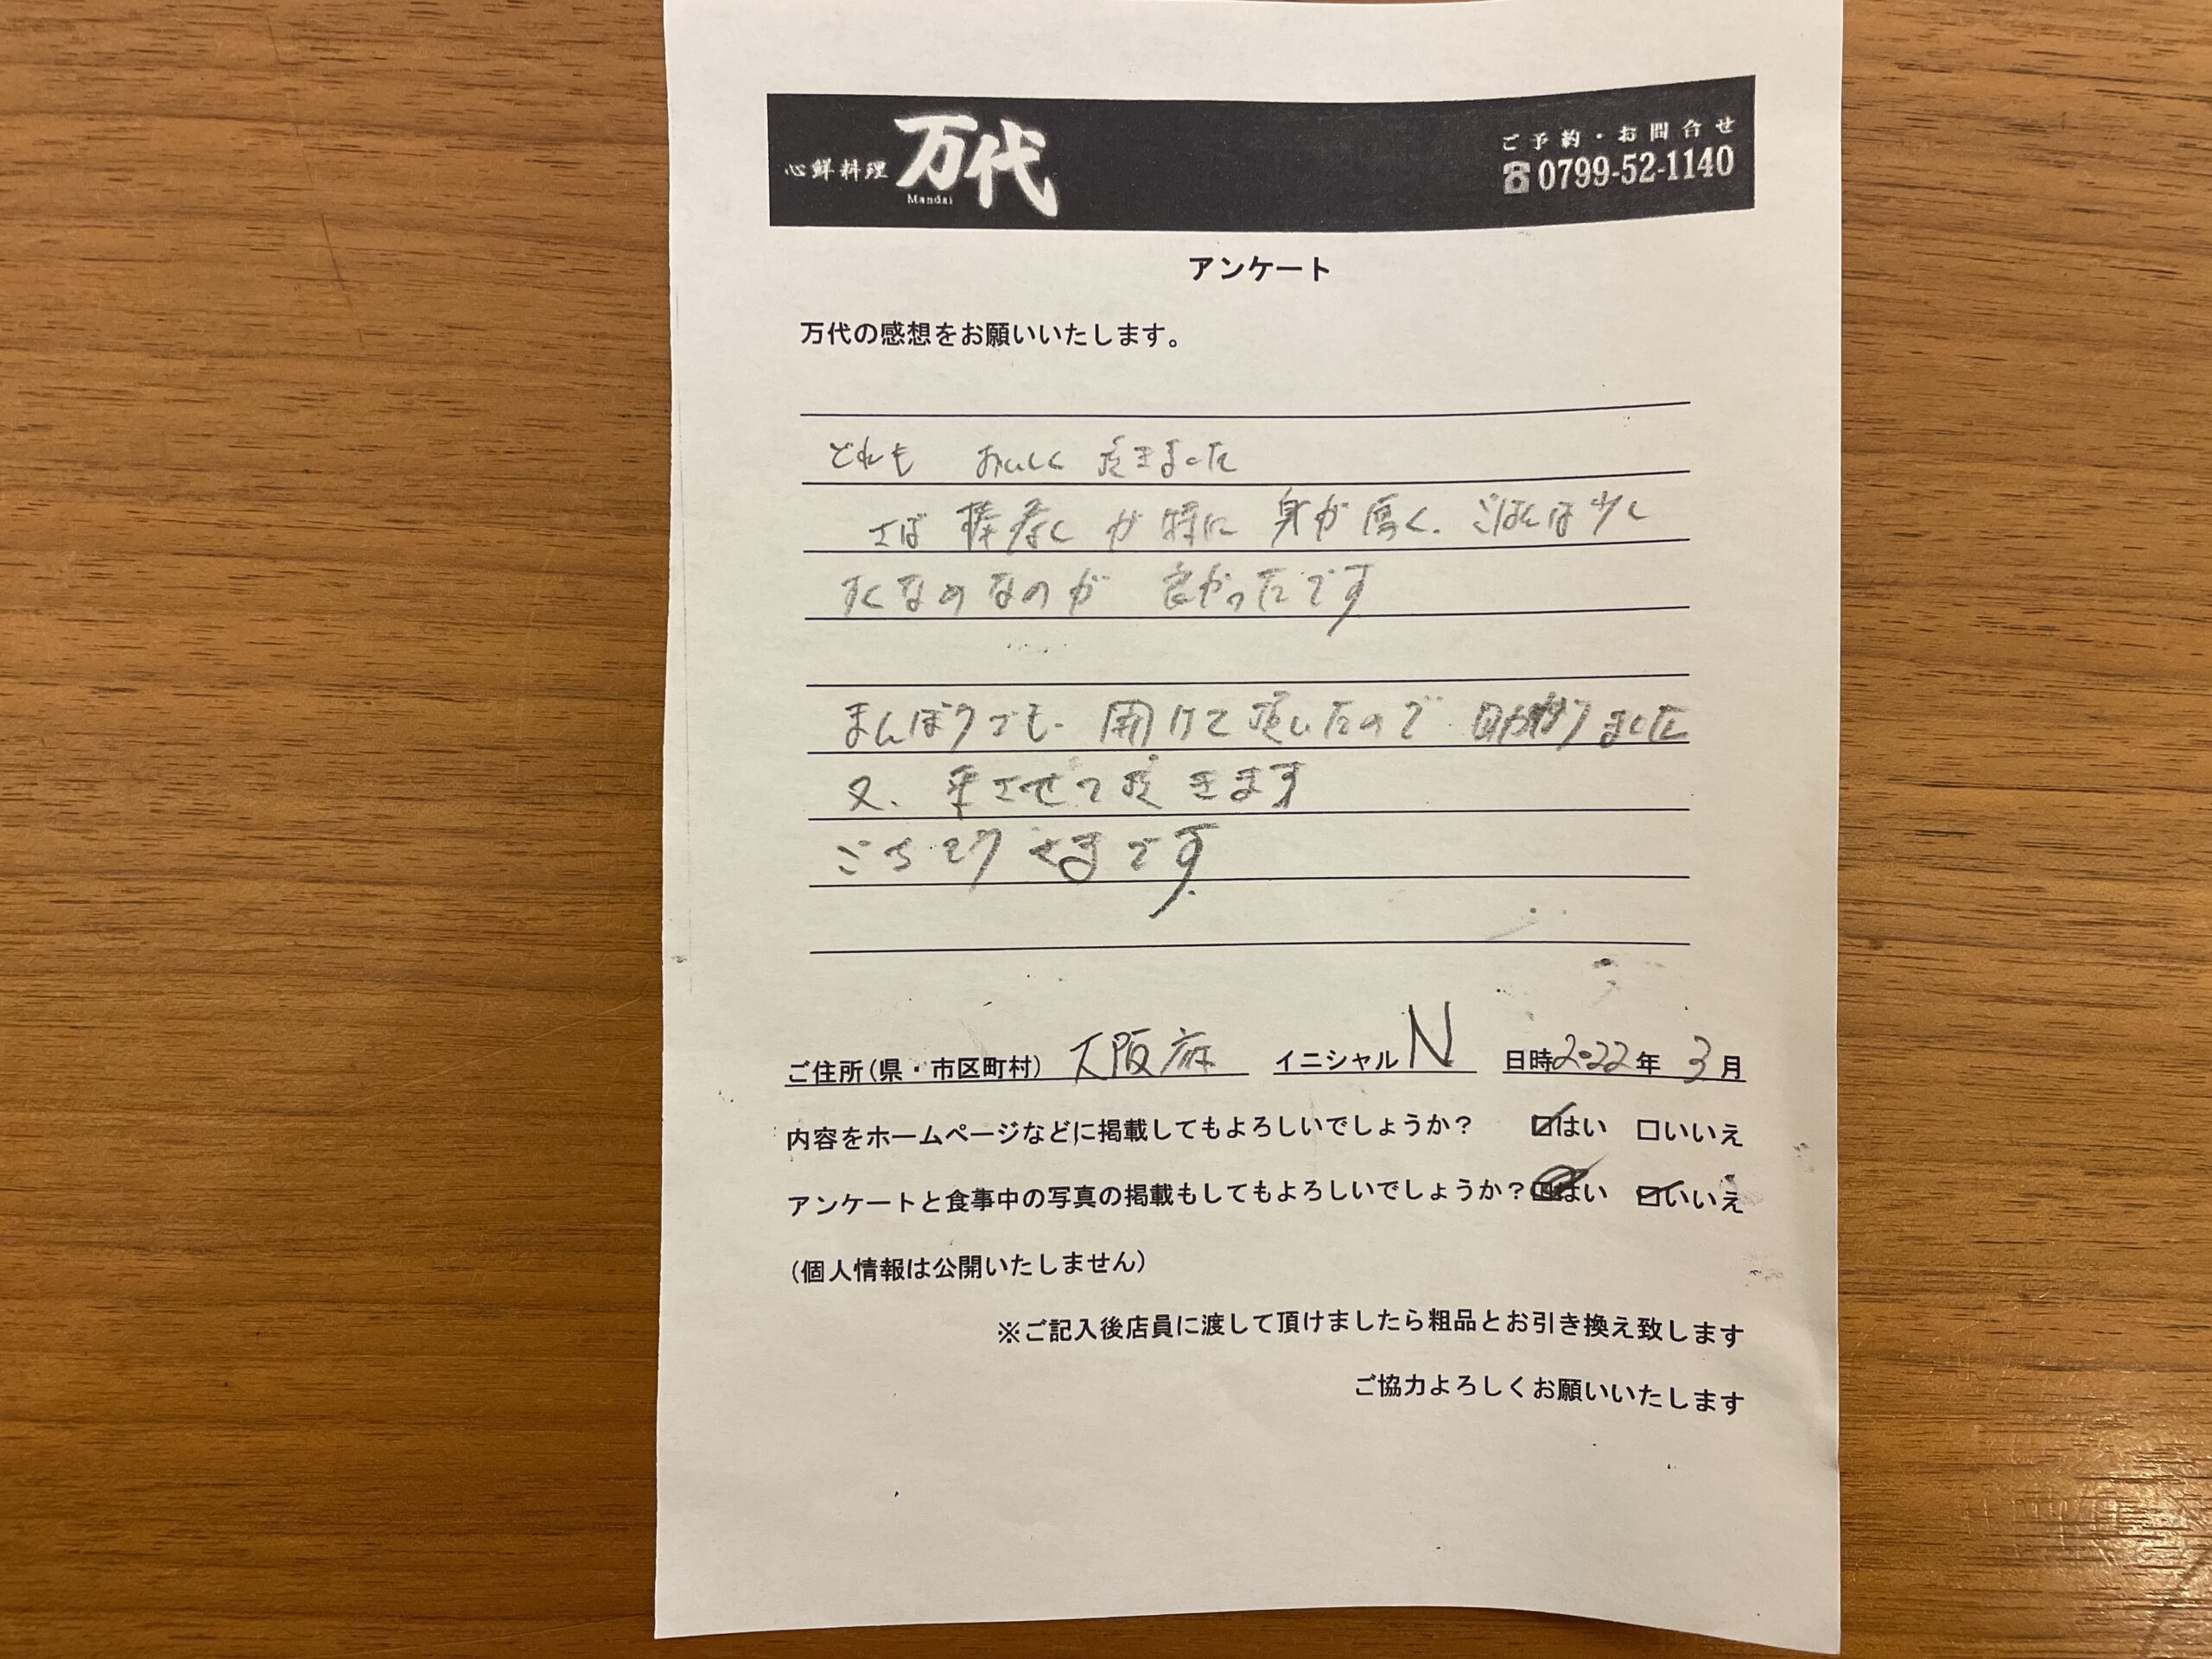 心鮮料理 万代
Mandai
ご予約・お問合せ
☎0799-52-1140
アンケート
万代の感想をお願いいたします。
どれも おいしく 頂きました
さば 棒寿しが特に 身が厚く、ごはんは少し
すくなめなのが 良かったです
まんぼうでも、開けて頂いたので 助かりました
又、来させて頂きます
ごちそうさまです
ご住所(県・市区町村) 大阪府 イニシャル N 日時2022年 3月
内容をホームページなどに掲載してもよろしいでしょうか? ☑はい □いいえ
アンケートと食事中の写真の掲載もしてもよろしいでしょうか? はい ☑いいえ
(個人情報は公開いたしません)
※ご記入後店員に渡して頂けましたら粗品とお引き換え致します
ご協力よろしくお願いいたします